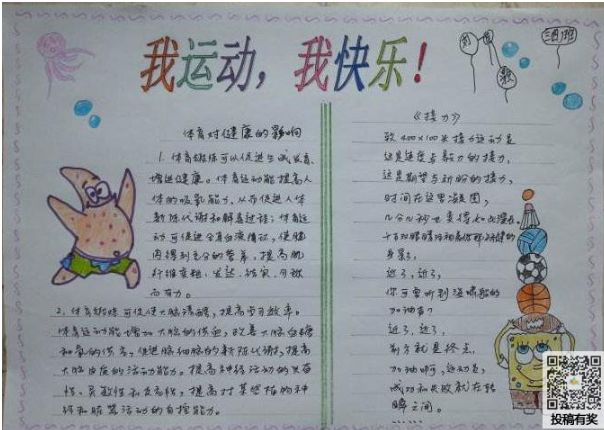 我运动，我快乐！
体育对健康的影响
1. 体育锻炼可以促进生长发育、
增进健康。体育运动能提高人
体的吸氧能力，从而促进人体
新陈代谢和解毒过程；体育运
动可促进全身血液循环，使肌
肉得到充分的营养，提高肌
纤维变粗，发达、结实、匀称
而有力。
2. 体育锻炼可促使大脑清醒，提高学习效率。
体育运动能增加大脑的供血，改善大脑血糖
和氧的供应，促进脑细胞的新陈代谢，提高
大脑皮层的活动能力。提高神经活动的灵活
性、灵敏性和反应性，提高对某些植物神
经和脏器活动的自控能力。
《接力》
致400×100米接力运动员
这是速度与毅力的接力，
这是期望与祈盼的接力，
时间在这里凝固，
几分几秒也变得如此漫长。
身影；
近了，近了，
你可曾听到
加油声？
近了，近了，
前方就是终点，
加油啊，运动员，
成功和失败就在转
瞬之间。
……
投稿有奖